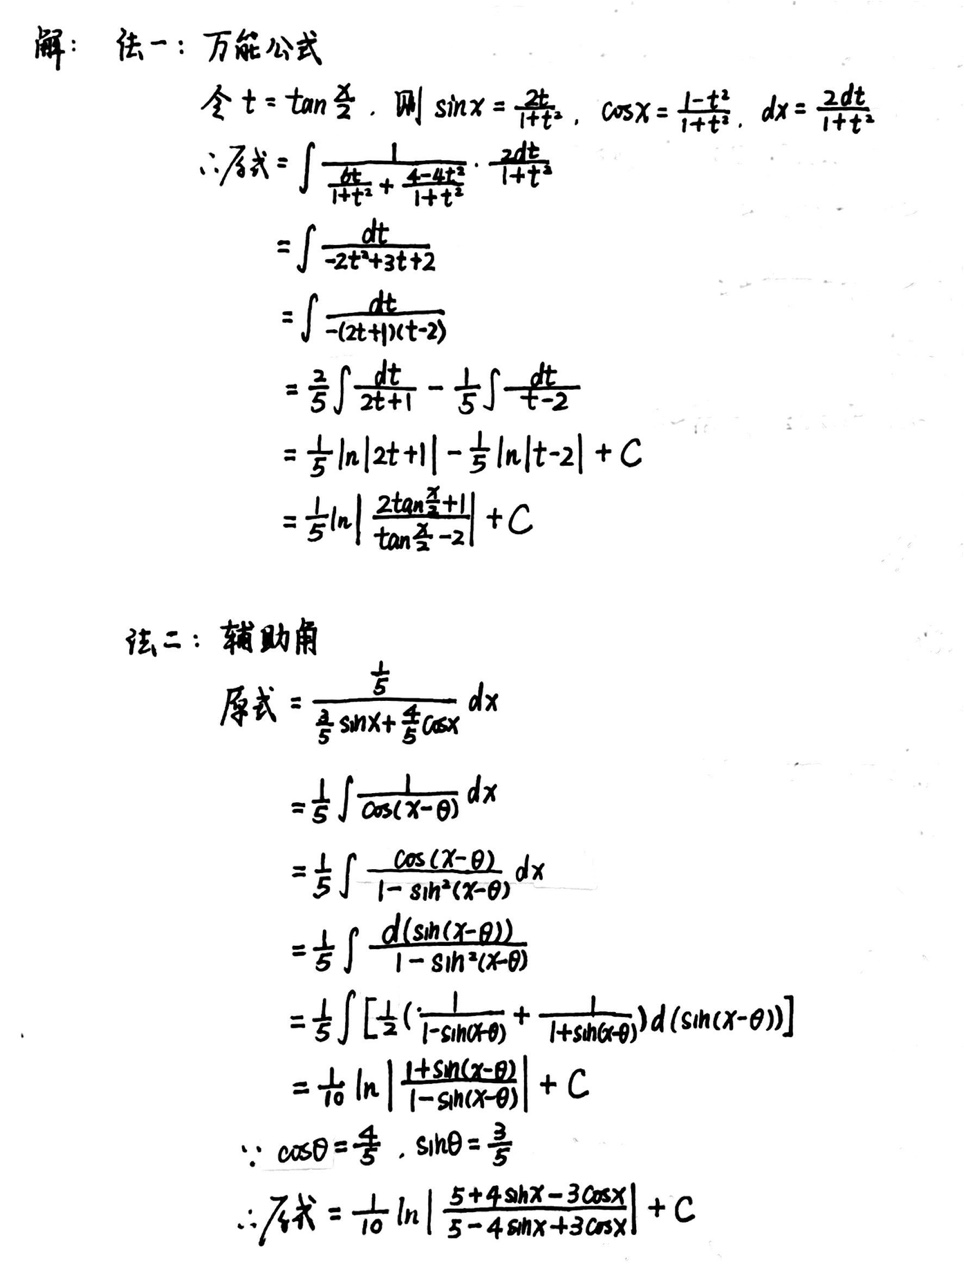 解: 法一: 万能公式
令 t = tan x/2 . 则 sinx = 2t/(1+t²), cosx = (1-t²)/(1+t²), dx = 2dt/(1+t²)
∴原式 = ∫ 1/(6t/(1+t²) + (4-4t²)/(1+t²)) · 2dt/(1+t²)
= ∫ dt/(-2t²+3t+2)
= ∫ dt/(-(2t+1)(t-2))
= 2/5 ∫ dt/(2t+1) - 1/5 ∫ dt/(t-2)
= 1/5 ln|2t+1| - 1/5 ln|t-2| + C
= 1/5 ln|(2tan x/2 +1)/(tan x/2 -2)| + C
法二: 辅助角
原式 = (1/5)/(3/5 sinx + 4/5 cosx) dx
= 1/5 ∫ 1/cos(x-θ) dx
= 1/5 ∫ cos(x-θ)/(1-sin²(x-θ)) dx
= 1/5 ∫ d(sin(x-θ))/(1-sin²(x-θ))
= 1/5 ∫ [1/2 (1/(1-sin(x-θ)) + 1/(1+sin(x-θ))) d(sin(x-θ))]
= 1/10 ln|(1+sin(x-θ))/(1-sin(x-θ))| + C
∵ cosθ = 4/5 . sinθ = 3/5
∴原式 = 1/10 ln|(5+4sinx-3cosx)/(5-4sinx+3cosx)| + C